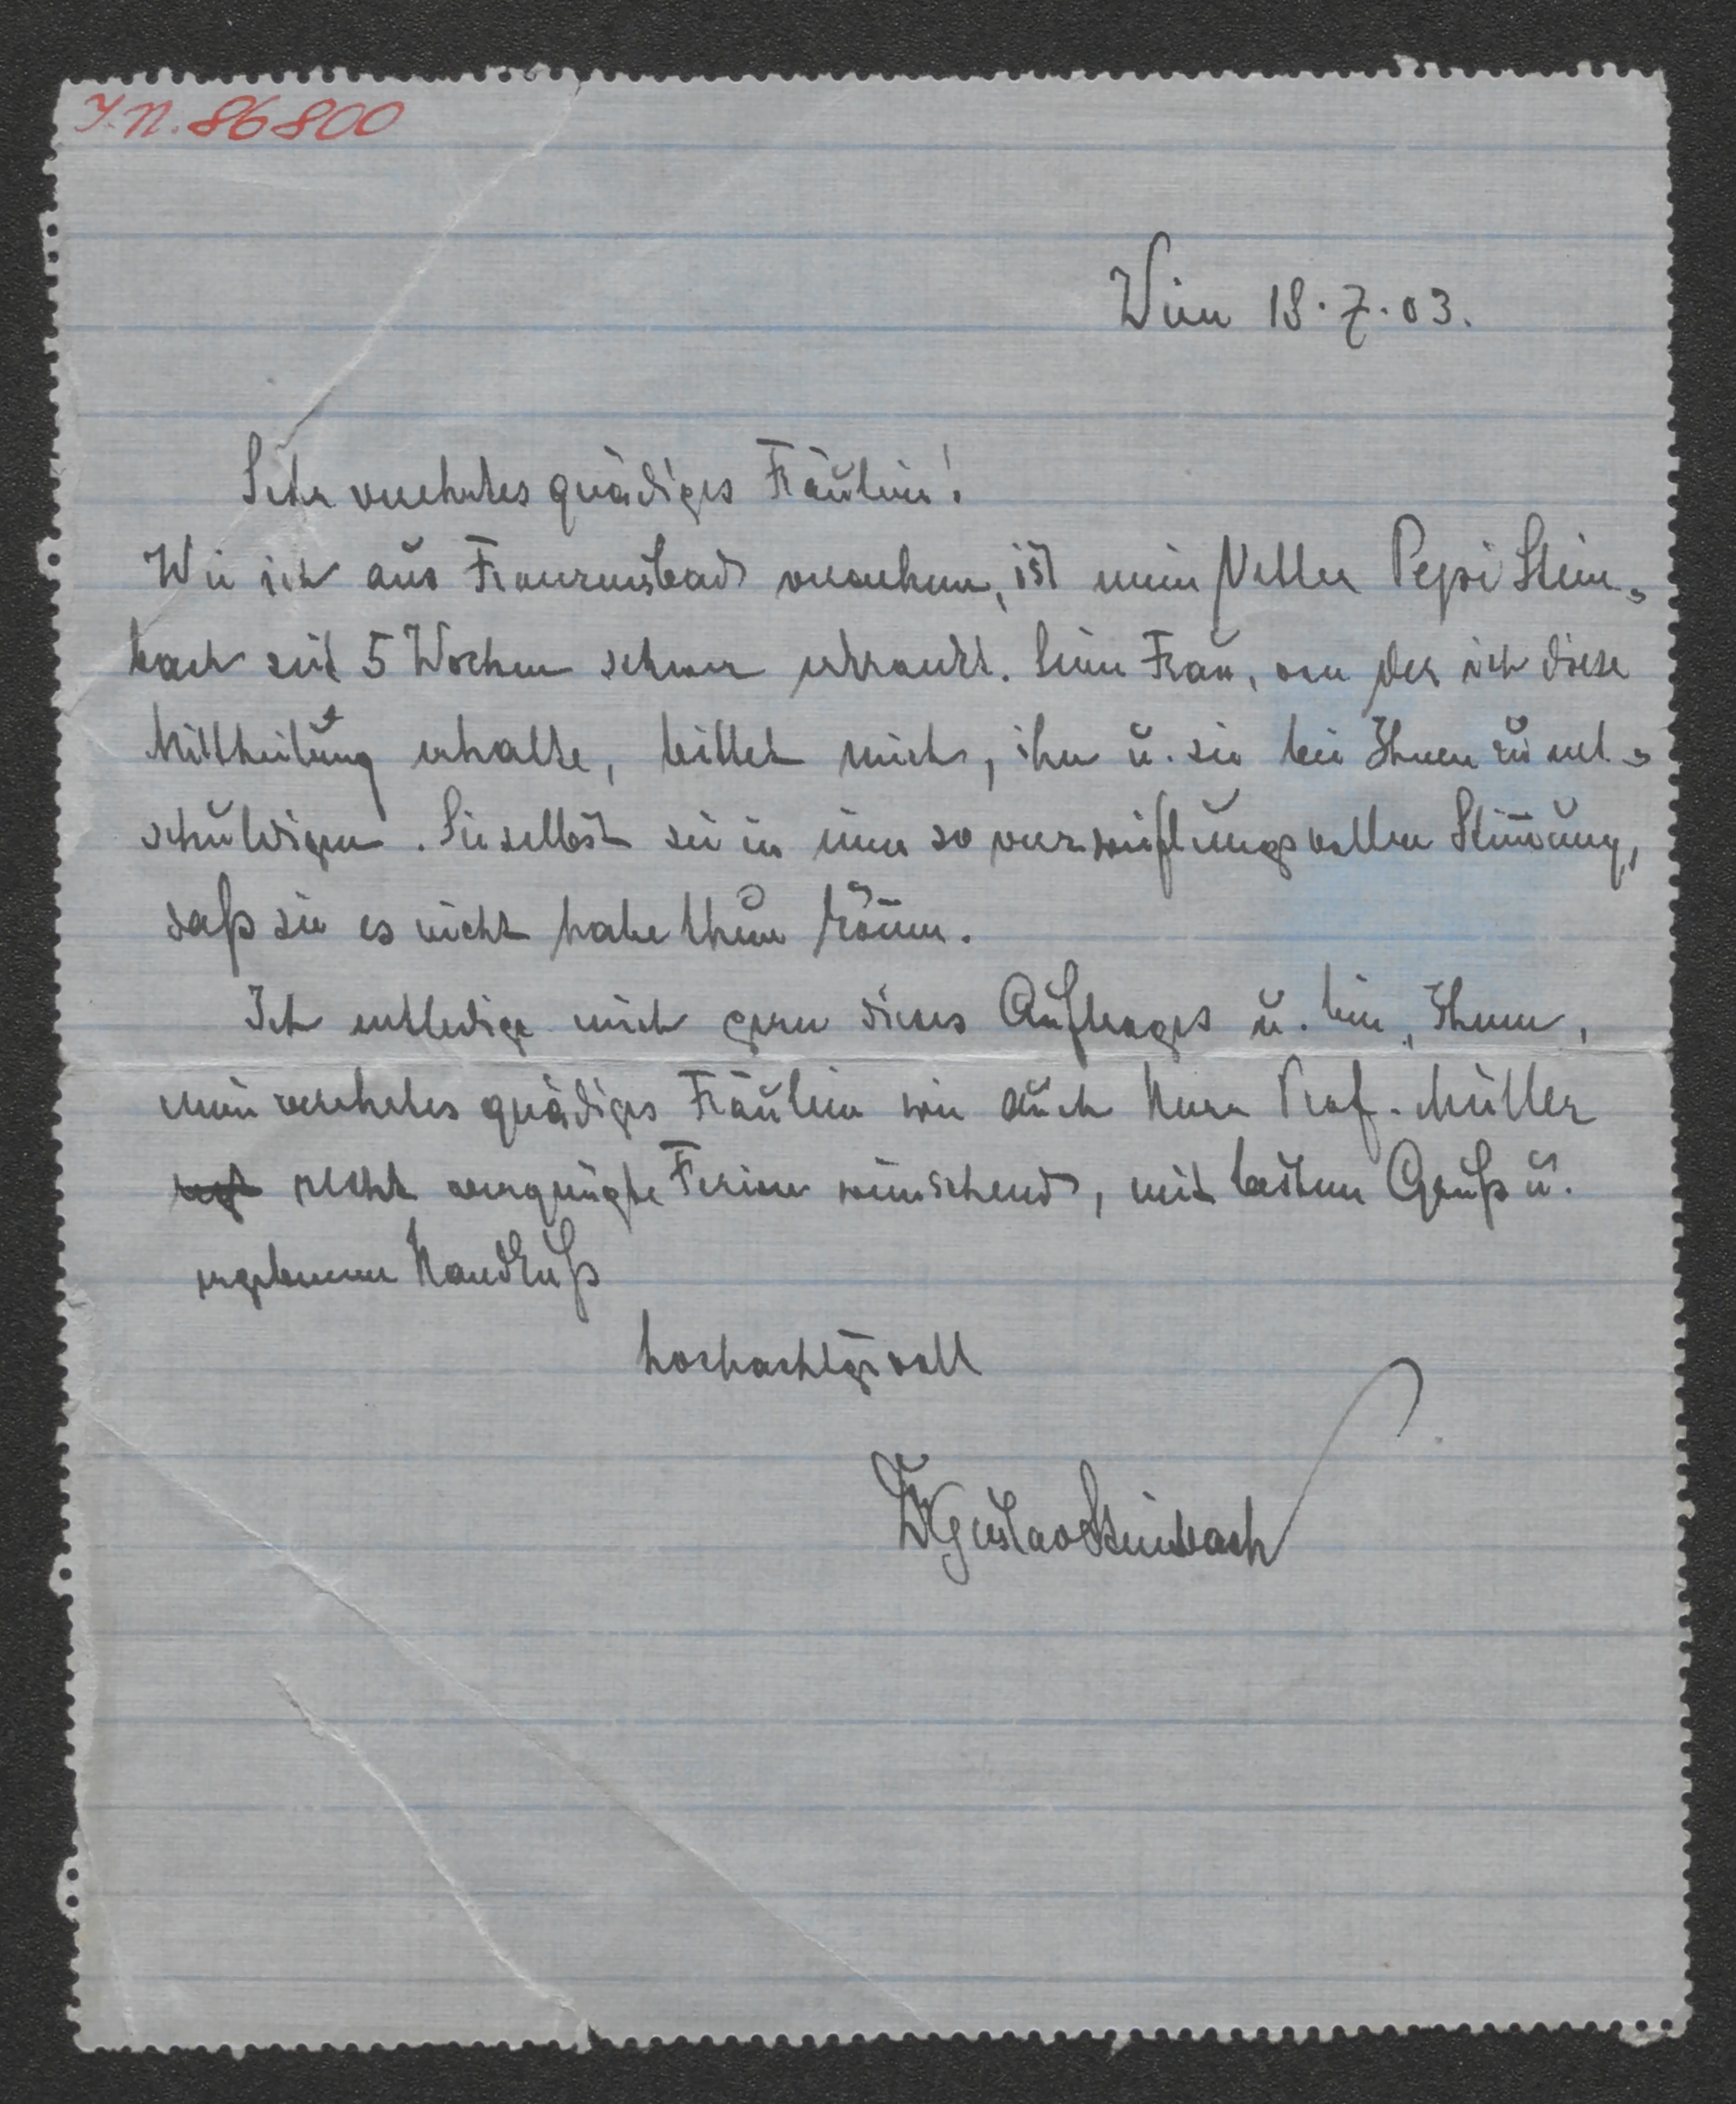 I.N. 86800
Wien 18.7.03.
Sehr verehrtes gnädiges Fräulein!
Wie ich aus Franzensbad vernehme, ist mein Vetter Pepi Stein-
bach seit 5 Wochen schwer erkrankt. Seine Frau, von der ich diese
Mittheilung erhalte, bittet mich, ihn u. sie bei Ihnen zu ent-
schuldigen. Sie selbst sei in einer so verzweiflungsvollen Stim̄ung,
daß sie es nicht habe thun kön̄en.
Ich entledige mich gern dieses Auftrages u. bin, Ihnen,
mein verehrtes gnädiges Fräulein wie auch Herrn Prof. Müller
recht vergnügte Ferien wünschend, mit bestem Gruß u.
ergebenem Handkuß
hochachtgsvoll
Dr Gustav Steinbach